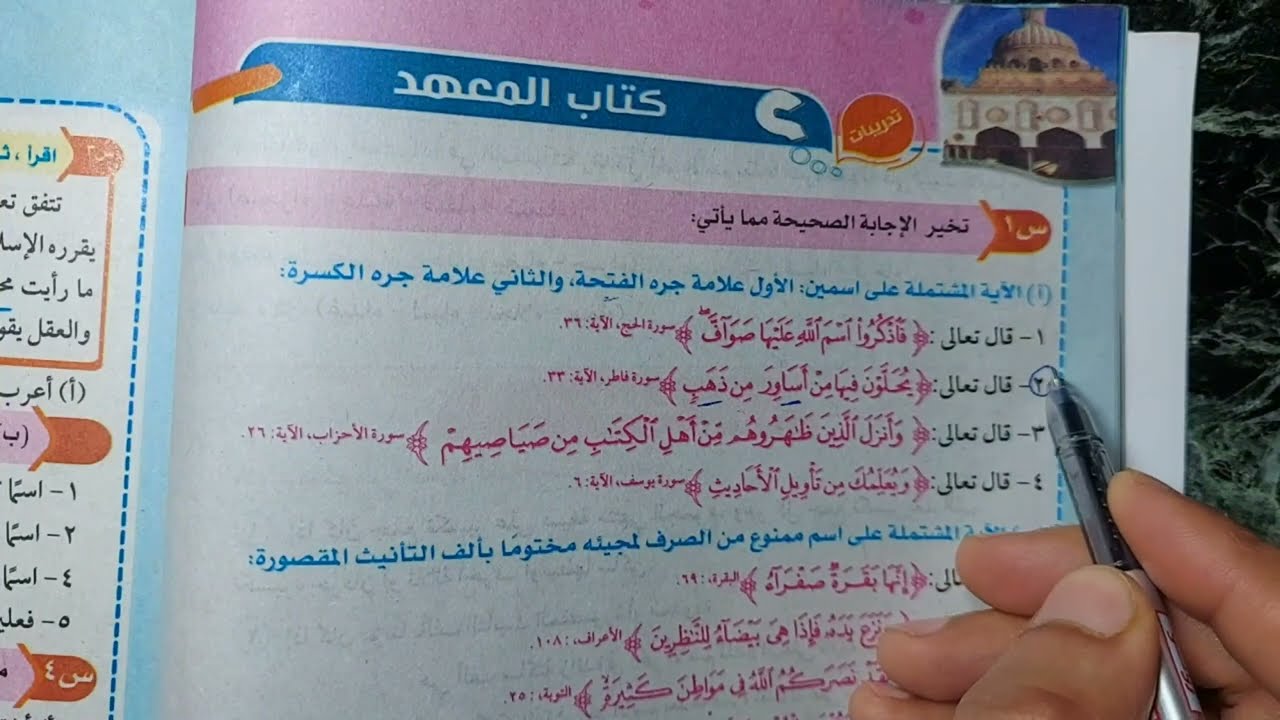 كتاب المعهد
تدريبات
س١ تخير الإجابة الصحيحة مما يأتي:
(أ) الآية المشتملة على اسمين: الأول علامة جره الفتحة، والثاني علامة جره الكسرة:
١- قال تعالى: ﴿ فَاذْكُرُوا اسْمَ اللَّهِ عَلَيْهَا صَوَافَّ ﴾ سورة الحج، الآية: ٣٦.
٢- قال تعالى: ﴿ يُحَلَّوْنَ فِيهَا مِنْ أَسَاوِرَ مِن ذَهَبٍ ﴾ سورة فاطر، الآية: ٣٣.
٣- قال تعالى: ﴿ وَأَنزَلَ الَّذِينَ ظَاهَرُوهُم مِّنْ أَهْلِ الْكِتَابِ مِن صَيَاصِيهِمْ ﴾ سورة الأحزاب، الآية: ٢٦.
٤- قال تعالى: ﴿ وَيُعَلِّمُكَ مِن تَأْوِيلِ الْأَحَادِيثِ ﴾ سورة يوسف، الآية: ٦.
المشتملة على اسم ممنوع من الصرف لمجيئه مختومًا بألف التأنيث المقصورة:
﴿ إِنَّهَا بَقَرَةٌ صَفْرَاءُ ﴾ البقرة: ٦٩.
يَدَهُ فَإِذَا هِيَ بَيْضَاءُ لِلنَّاظِرِينَ ﴾ الأعراف: ١٠٨.
نَصَرَكُمُ اللَّهُ فِي مَوَاطِنَ كَثِيرَةٍ ﴾ التوبة: ٢٥.
اقرأ ،
تتفق
يقرره
ما رأيت
والعقل
(أ) أعرب
(ب)
١- اسمًا
٢- اسمًا
٤- اسمًا
٥-
س٤